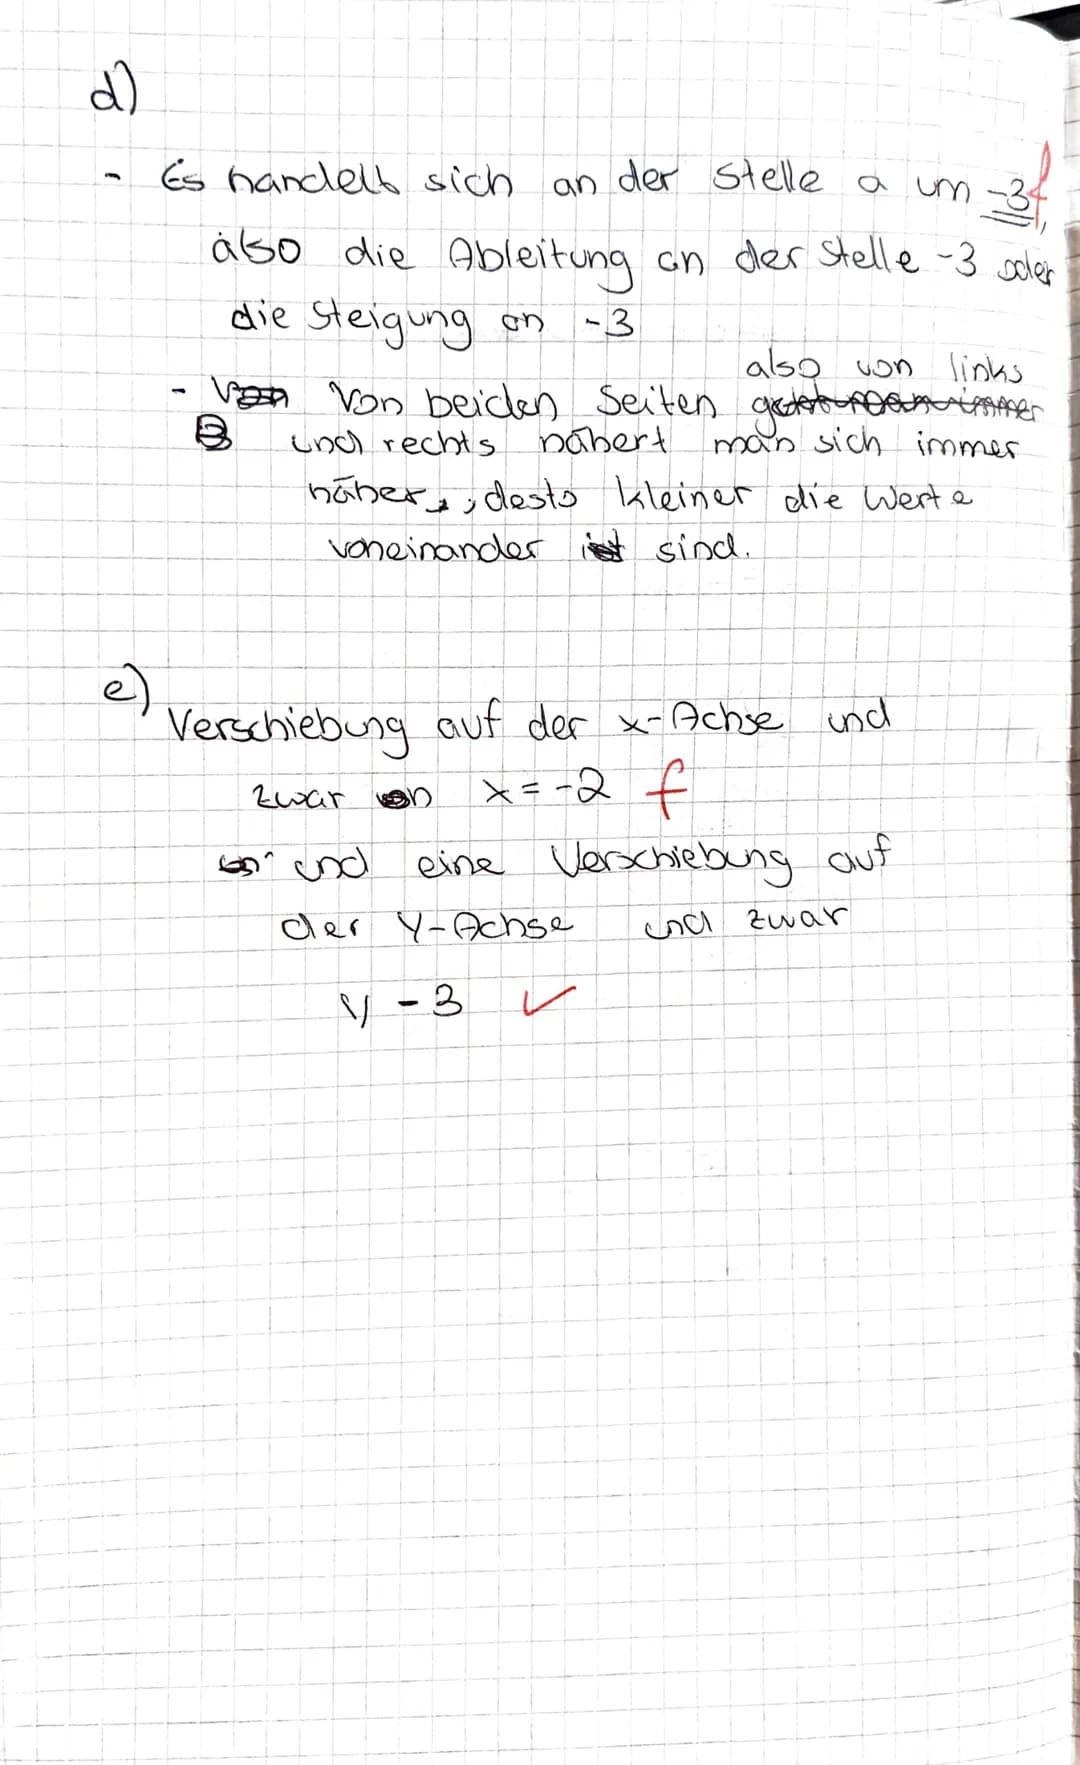 d)
- Es handelt sich an der Stelle a um -3 f,
also die Ableitung an der Stelle -3 oder
die Steigung an -3
also von links
- Von Von beiden Seiten
und rechts nähert man sich immer
näher, desto kleiner die Werte
voneinander ist sind.
e)
Verschiebung auf der x-Achse und
zwar x = -2 f
und eine Verschiebung auf
der Y-Achse und zwar
y - 3 ✓